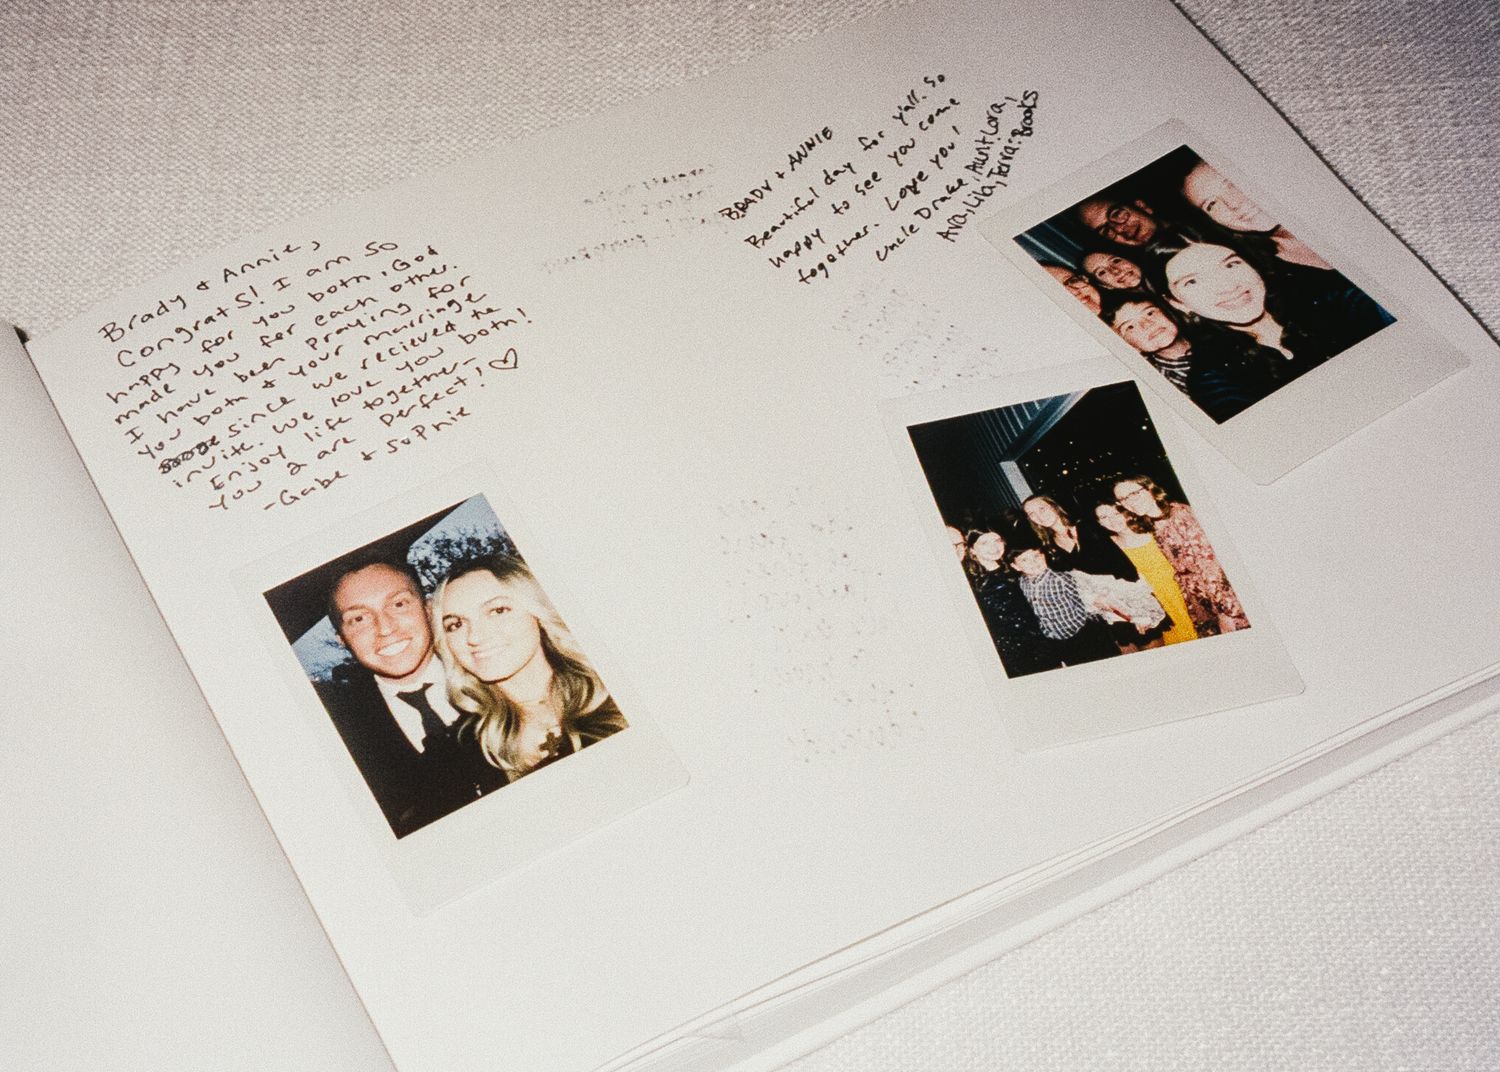 Brady + Annie,
Congrats! I am so
happy for you both, God
made you for each other.
I have been praying for
you both + your marriage
since we recieved the
invite. We love you both!
Enjoy life together—
You 2 are perfect! ♡
-Gabe + Sophie
BRADY + ANNIE
Beautiful day for y'all. So
happy to see you come
together. Love you!
Uncle Drake, Aunt Lora,
Ava, Lila, Terra: Brooks